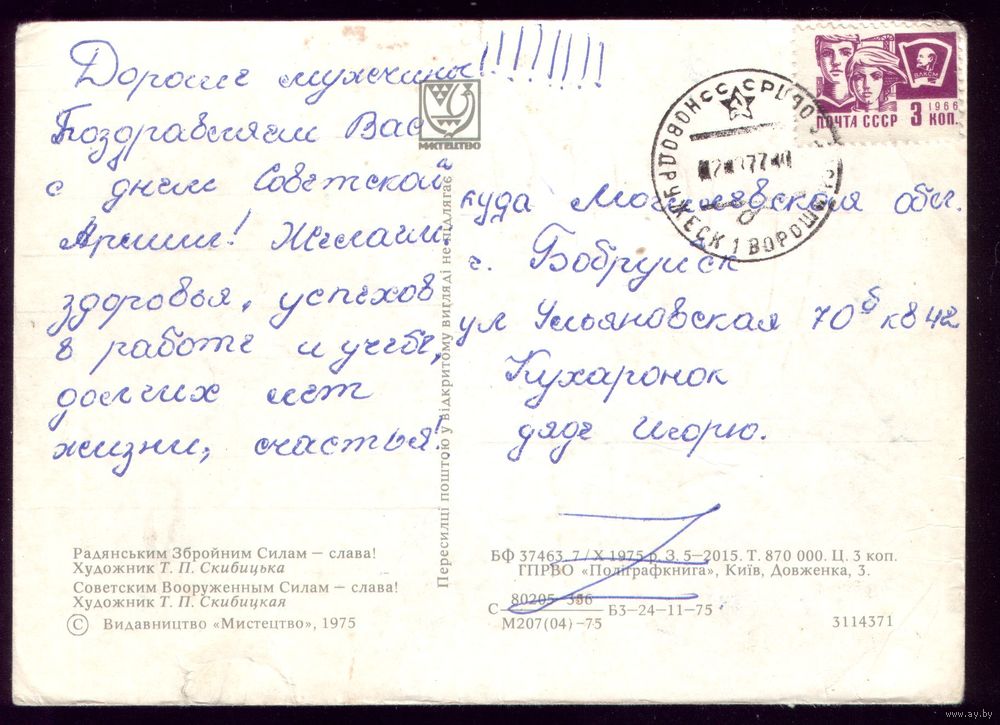 Дорогие мужчины!!!!!!!!
Поздравляем Вас
с днем Советской
Армии! Желаем
здоровья, успехов
в работе и учебе,
долгих лет
жизни, счастья!
МИСТЕЦТВО
ПОЧТА СССР 3 КОП.
1966
ВЛКСМ
куда Могилевская обл.
г. Бобруйск
ул Ульяновская 70б кв 42
Кухаронок
дяде Игорю.
Пересилці поштою у відкритому вигляді не підлягає
Радянським Збройним Силам — слава!
Художник Т. П. Скибицька
Советским Вооруженным Силам — слава!
Художник Т. П. Скибицкая
© Видавництво «Мистецтво», 1975
БФ 37463. 7/X 1975 р. З. 5—2015. Т. 870 000. Ц. 3 коп.
ГПРВО «Поліграфкнига», Київ, Довженка, 3.
С 80205—356 БЗ—24—11—75
М207(04)—75
3114371
www.ay.by